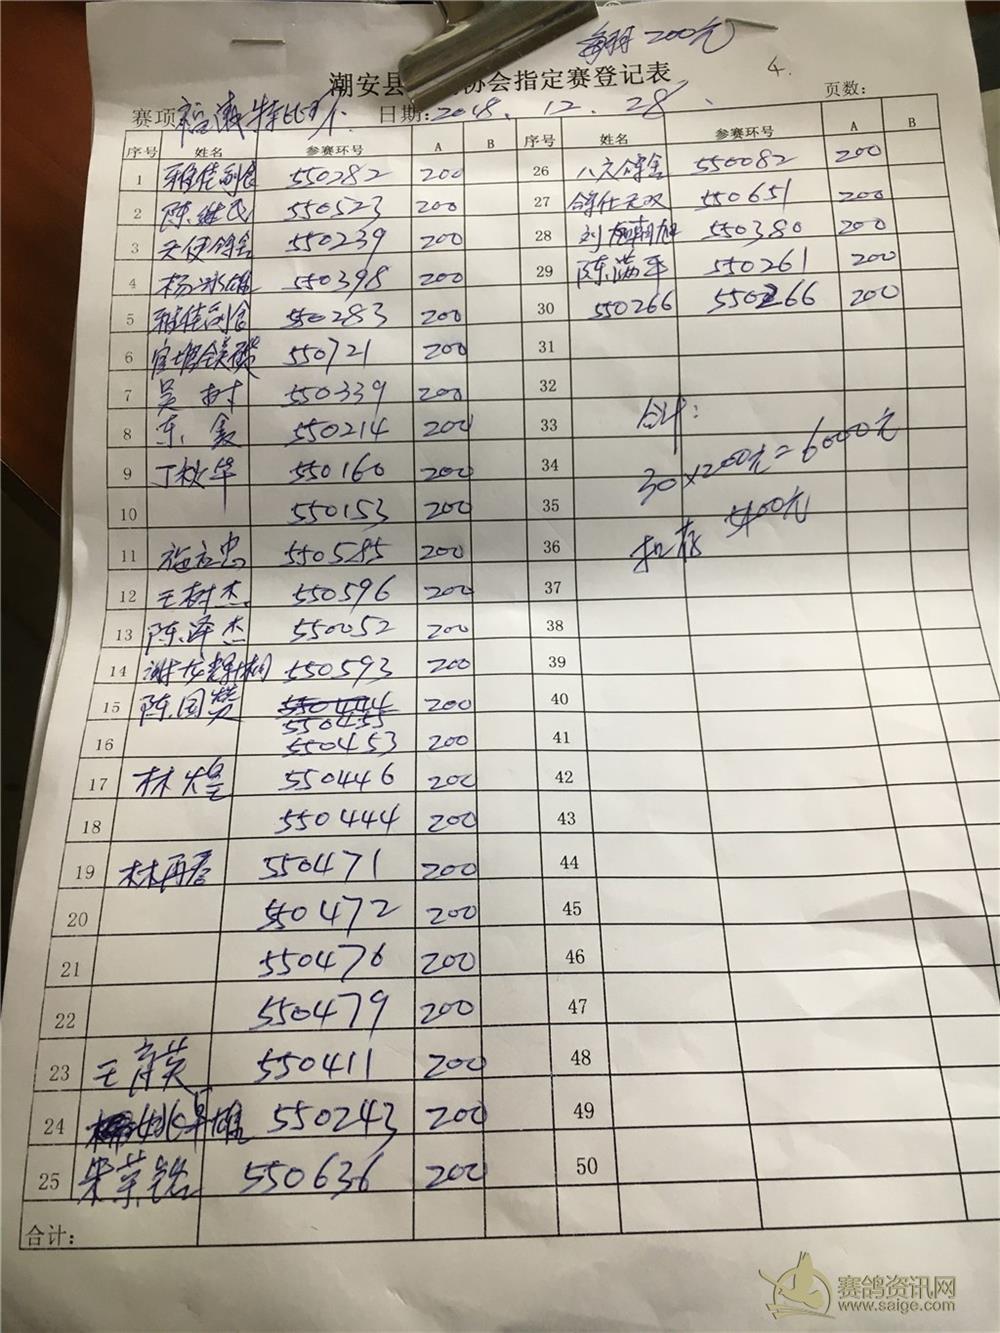 每羽200元
潮安县 协会指定赛登记表
4.
赛项 特比 日期:2018.12.28. 页数:
序号 姓名 参赛环号 A B 序号 姓名 参赛环号 A B
1 雅佳副食 550282 200 26 八六鸽舍 550082 200
2 陈继民 550523 200 27 鸽什无双 550651 200
3 天使鸽舍 550239 200 28 刘 朝旭 550380 200
4 杨冰雄 550398 200 29 陈满平 550261 200
5 雅佳副食 550283 200 30 550266 550266 200
6 官塘 550721 200 31
7 吴树 550339 200 32
8 东鑫 550214 200 33 合计:
9 丁秋华 550160 200 34 30×200元=6000元
10 550153 200 35
11 施应忠 550585 200 36 扣存 5400元
12 王树杰 550596 200 37
13 陈泽杰 550052 200 38
14 谢 550593 200 39
15 陈国赞 550444 200 40
550455
16 550453 200 41
17 林煌 550446 200 42
18 550444 200 43
19 林再彦 550471 200 44
20 550472 200 45
21 550476 200 46
22 550479 200 47
23 王 英 550411 200 48
24 雄 550243 200 49
25 朱荣铭 550636 200 50
合计:
赛鸽资讯网
www.saige.com